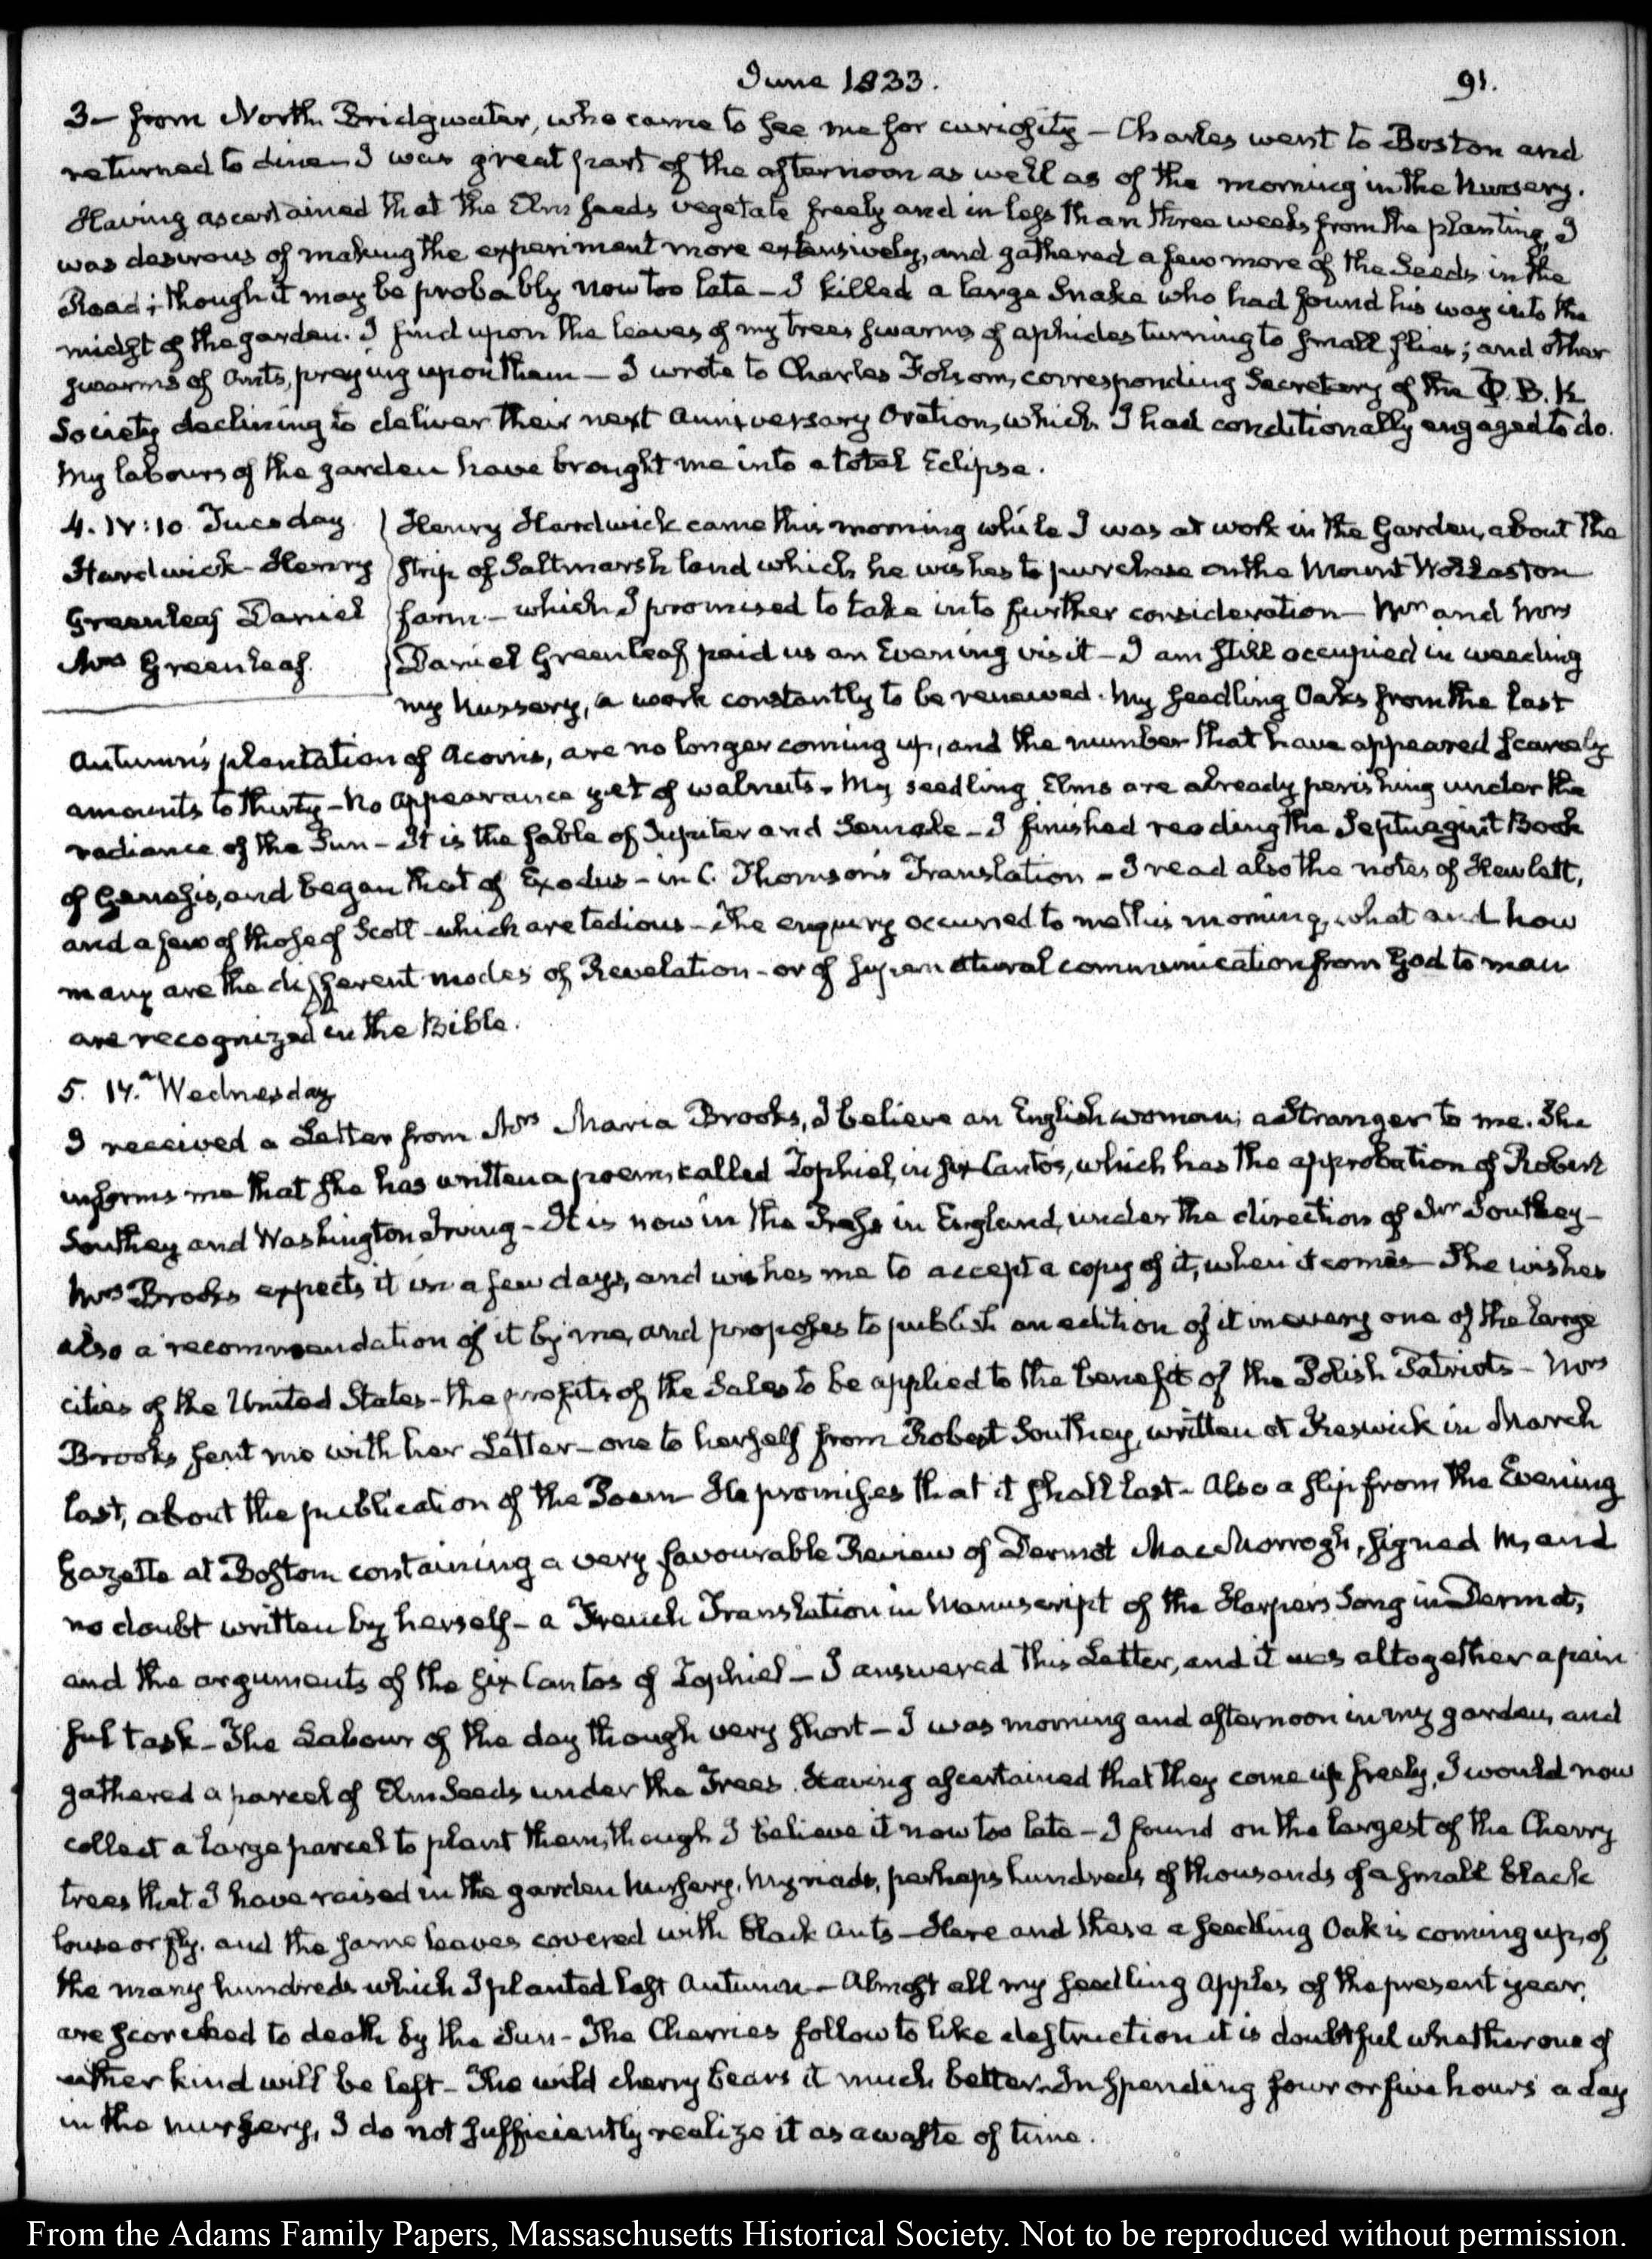 June 1833.
91.
3— from North Bridgwater, who came to see me for curiosity — Charles went to Boston and
returned to dine — I was great part of the afternoon as well as of the morning in the Nursery.
Having ascertained that the Elm seeds vegetate freely and in less than three weeks from the planting, I
was desirous of making the experiment more extensively, and gathered a few more of the Seeds in the
Road; though it may be probably now too late — I killed a large Snake who had found his way into the
midst of the garden. I find upon the leaves of my trees swarms of aphides turning to small flies; and other
swarms of Ants, preying upon them — I wrote to Charles Folsom, corresponding Secretary of the Φ. B. K
Society declining to deliver their next Anniversary Oration, which I had conditionally engaged to do.
My labours of the garden have brought me into a total Eclipse.
4. IV:10 Tuesday
Hardwick Henry
Greenleaf Daniel
Mrs Greenleaf.
Henry Hardwick came this morning while I was at work in the Garden, about the
strip of Saltmarsh land which he wishes to purchase on the Mount Wollaston
farm — which I promised to take into further consideration — Mr and Mrs
Daniel Greenleaf paid us an Evening visit — I am still occupied in weeding
my Nursery, a work constantly to be renewed. My seedling Oaks from the last
Autumn's plantation of Acorns, are no longer coming up, and the number that have appeared scarcely
amounts to thirty — No appearance yet of walnuts — My seedling Elms are already perishing under the
radiance of the Sun — It is the fable of Jupiter and Semele — I finished reading the Septuagint Book
of Genesis, and began that of Exodus — in C. Thomson's Translation — I read also the notes of Hewlett,
and a few of those of Scott — which are tedious — The enquiry occurred to me this morning, what and how
many are the different modes of Revelation — or of supernatural communication from God to man
are recognized in the Bible.
5. IV. Wednesday
I received a Letter from Mrs Maria Brooks, I believe an English woman; a Stranger to me. She
informs me that she has written a poem, called Zophiel, in six Cantos, which has the approbation of Robert
Southey and Washington Irving — It is now in the Press in England, under the direction of Mr Southey —
Mrs Brooks expects it in a few days, and wishes me to accept a copy of it, when it comes — She wishes
also a recommendation of it by me, and proposes to publish an edition of it in every one of the large
cities of the United States — the profits of the Sales to be applied to the benefit of the Polish Patriots — Mrs
Brooks sent me with her Letter — one to herself from Robert Southey, written at Keswick in March
last, about the publication of the Poem — He promises that it shall last — Also a slip from the Evening
Gazette at Boston containing a very favourable Review of Dermot MacMorrogh, signed M, and
no doubt written by herself — a French Translation in Manuscript of the Harper's Song in Dermot,
and the arguments of the six Cantos of Zophiel — I answered this Letter, and it was altogether a pain
ful task — The Labour of the day though very short — I was morning and afternoon in my garden, and
gathered a parcel of Elm Seeds under the Trees. Having ascertained that they come up freely, I would now
collect a large parcel to plant them, though I believe it now too late — I found on the largest of the Cherry
trees that I have raised in the garden Nursery, Myriads, perhaps hundreds of thousands of a small black
louse or fly. and the same leaves covered with black ants — Here and there a seedling Oak is coming up, of
the many hundreds which I planted last Autumn — Almost all my seedling Apples of the present year,
are scorched to death by the Sun — The Cherries follow to like destruction it is doubtful whether one of
either kind will be left — The wild cherry bears it much better. In spending four or five hours a day
in the nursery, I do not sufficiently realize it as a waste of time.
From the Adams Family Papers, Massachusetts Historical Society. Not to be reproduced without permission.